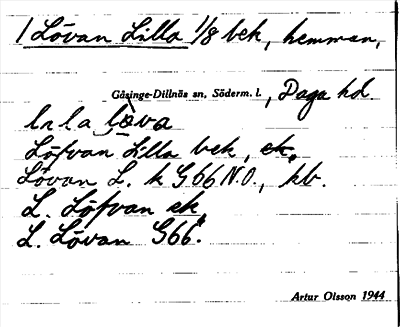 1 Lövan Lilla 1/8 bek, hemman,
Gåsinge-Dillnäs sn, Söderm. l., Daga hd.
lıla löva
Löfvan Lilla bek, ek,
Lövan L. h G66 N.O., kb.
L. Löfvan ek,
L. Lövan G66.
Artur Olsson 1944